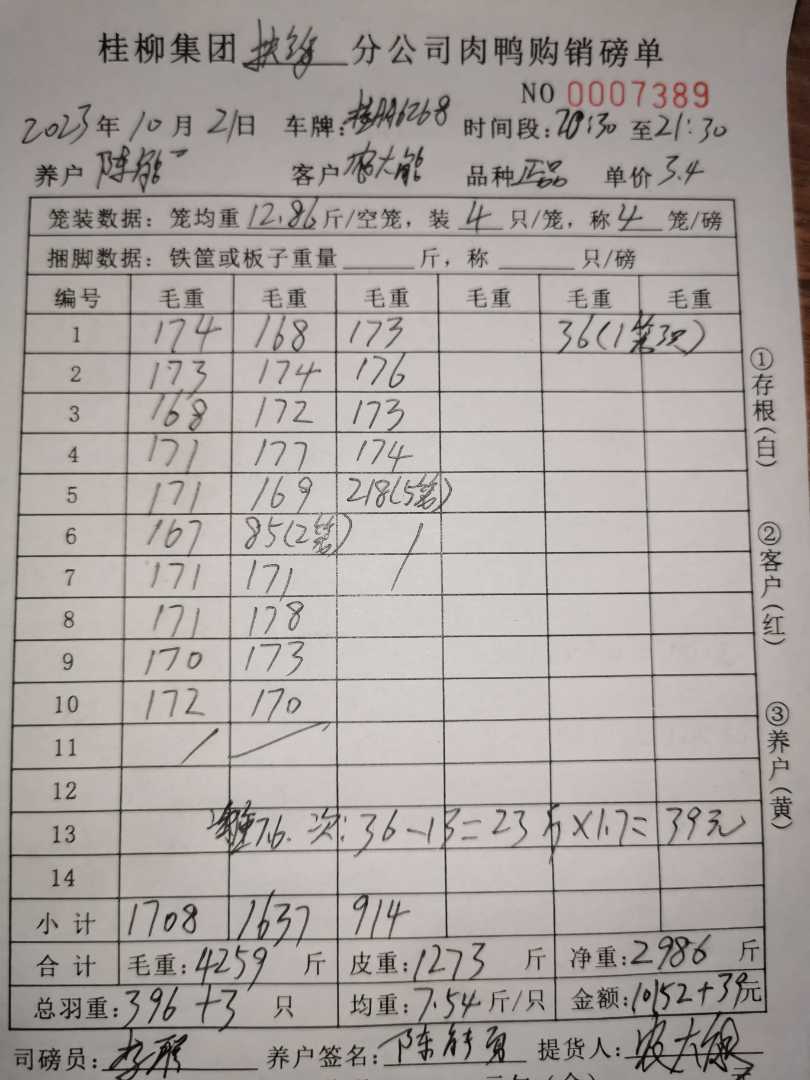 桂柳集团扶绥分公司肉鸭购销磅单
NO 0007389
2023年10月21日 车牌:桂AA6268 时间段:20:30至21:30
养户 陈能 客户 农大能 品种 正品 单价 3.4
笼装数据:笼均重12.86斤/空笼,装4只/笼,称4笼/磅
捆脚数据:铁筐或板子重量 斤,称 只/磅
编号 毛重 毛重 毛重 毛重 毛重 毛重
1 174 168 173 36(1笼3只)
2 173 174 176
3 168 172 173
4 171 177 174
5 171 169 218(5笼)
6 167 85(2笼) /
7 171 171
8 171 178
9 170 173
10 172 170
11 / /
12
13 7.6. 次:36-13=23斤×1.7=39元
14
小计 1708 1637 914
合计 毛重:4259斤 皮重:1273斤 净重:2986斤
总羽重:396+3只 均重:7.54斤/只 金额:10152+39元
司磅员: 养户签名:陈能 提货人:农大能
①存根(白)
②客户(红)
③养户(黄)